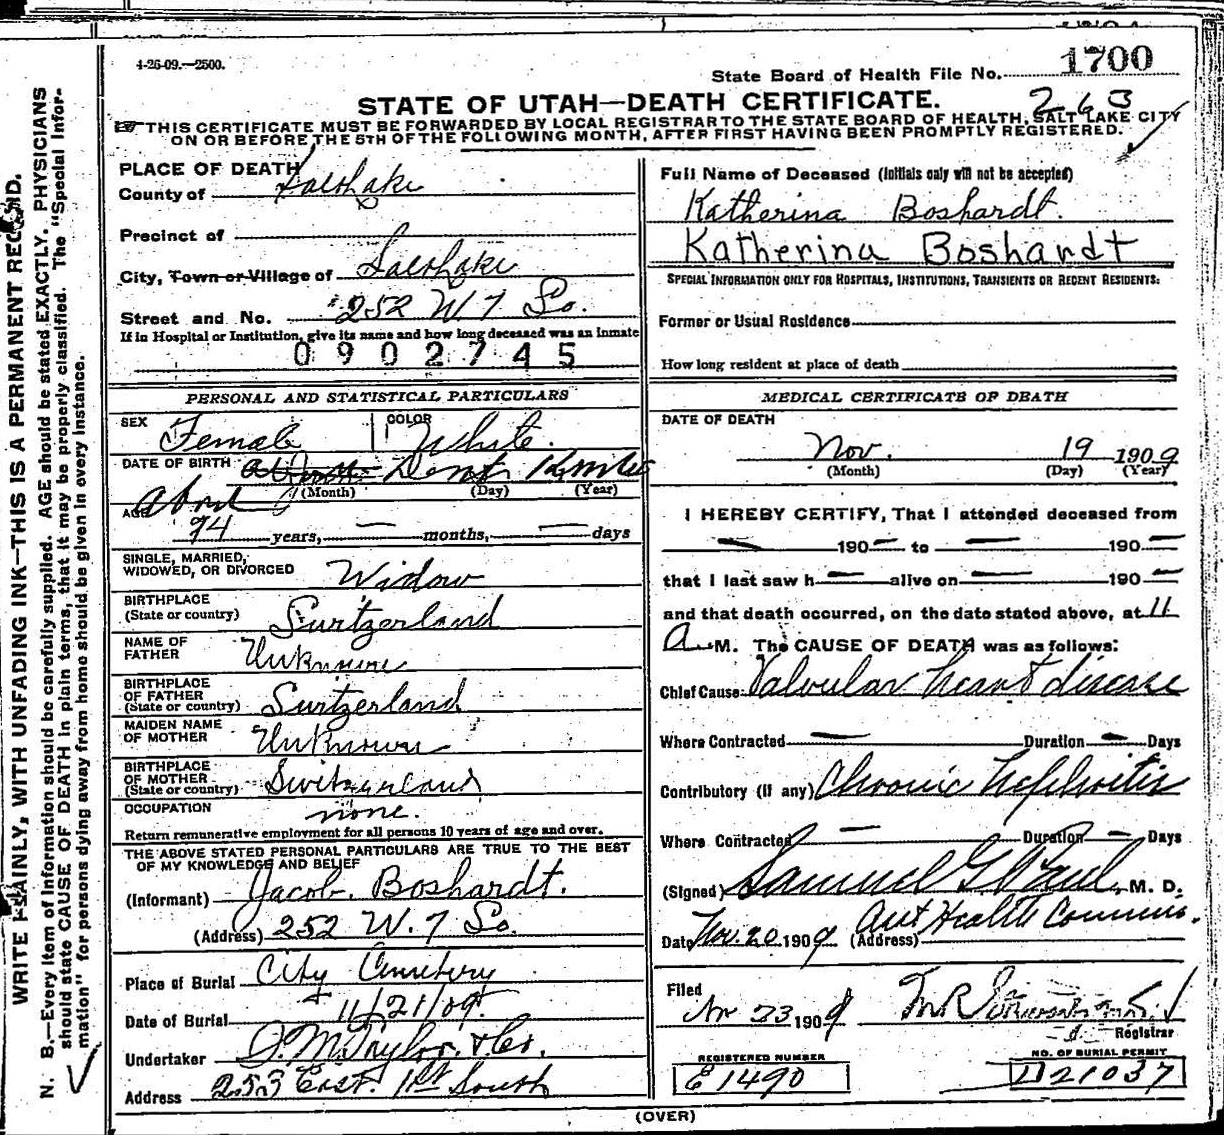 4-26-09.—2500.
State Board of Health File No. 1700
STATE OF UTAH—DEATH CERTIFICATE.
263
THIS CERTIFICATE MUST BE FORWARDED BY LOCAL REGISTRAR TO THE STATE BOARD OF HEALTH, SALT LAKE CITY
ON OR BEFORE THE 5TH OF THE FOLLOWING MONTH, AFTER FIRST HAVING BEEN PROMPTLY REGISTERED.
WRITE PLAINLY, WITH UNFADING INK—THIS IS A PERMANENT RECORD.
N. B.—Every item of Information should be carefully supplied. AGE should be stated EXACTLY. PHYSICIANS
should state CAUSE OF DEATH in plain terms, that it may be properly classified. The "Special Infor-
mation" for persons dying away from home should be given in every instance.
PLACE OF DEATH
County of Salt Lake
Precinct of
City, Town or Village of Salt Lake
Street and No. 252 W 7 So.
If in Hospital or Institution, give its name and how long deceased was an inmate
0902745
PERSONAL AND STATISTICAL PARTICULARS
SEX Female COLOR White.
DATE OF BIRTH Dont Know
(Month) (Day) (Year)
AGE about 74 years, — months, — days
SINGLE, MARRIED,
WIDOWED, OR DIVORCED Widow
BIRTHPLACE
(State or country) Switzerland
NAME OF
FATHER Unknown
BIRTHPLACE
OF FATHER
(State or country) Switzerland
MAIDEN NAME
OF MOTHER Unknown
BIRTHPLACE
OF MOTHER
(State or country) Switzerland
OCCUPATION none.
Return remunerative employment for all persons 10 years of age and over.
THE ABOVE STATED PERSONAL PARTICULARS ARE TRUE TO THE BEST
OF MY KNOWLEDGE AND BELIEF
(Informant) Jacob. Boshardt.
(Address) 252 W. 7 So.
Place of Burial City Cemetery
Date of Burial 11/21/09
Undertaker S. M. Taylor & Co.
Address 253 East. 1st South
Full Name of Deceased (Initials only will not be accepted)
Katherina Boshardt.
Katherina Boshardt
SPECIAL INFORMATION ONLY FOR HOSPITALS, INSTITUTIONS, TRANSIENTS OR RECENT RESIDENTS:
Former or Usual Residence
How long resident at place of death
MEDICAL CERTIFICATE OF DEATH
DATE OF DEATH
Nov. 19 1909
(Month) (Day) (Year)
I HEREBY CERTIFY, That I attended deceased from
— 190— to — 190—
that I last saw h— alive on — 190—
and that death occurred, on the date stated above, at 11
A M. The CAUSE OF DEATH was as follows:
Chief Cause Valvular heart disease
Where Contracted — Duration — Days
Contributory (if any) Chronic Nephritis
Where Contracted — Duration — Days
(Signed) Samuel G. Paul M. D.
Date Nov. 20 1909 (Address) Health
Filed Nov 23 1909
Registrar
REGISTERED NUMBER
E1490
NO. OF BURIAL PERMIT
D21037
(OVER)